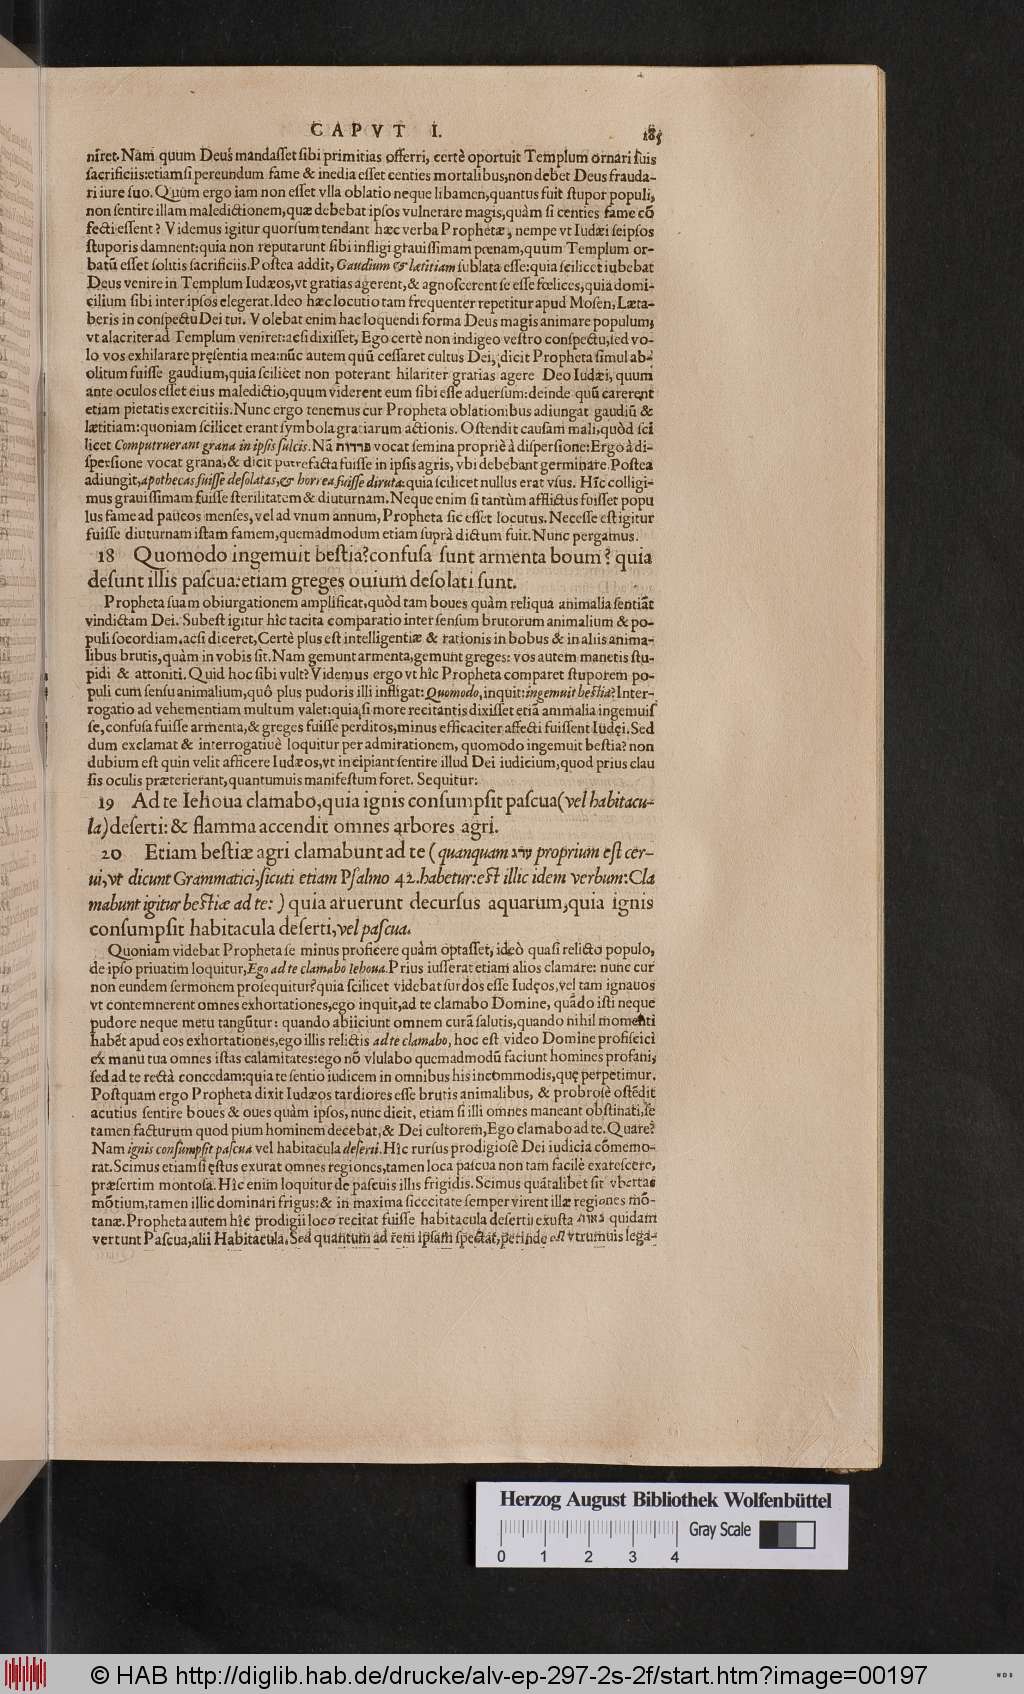 CAPVT I. 185
niret. Nam quum Deus mandaſſet ſibi primitias offerri, certè oportuit Templum ornari ſuis
ſacrificiis: etiamſi pereundum fame & inedia eſſet centies mortalibus, non debet Deus frauda-
ri iure ſuo. Quùm ergo iam non eſſet vlla oblatio neque libamen, quantus fuit ſtupor populi,
non ſentire illam maledictionem, quæ debebat ipſos vulnerare magis, quàm ſi centies fame cō
fecti eſſent? Videmus igitur quorſum tendant hæc verba Prophetæ, nempe vt Iudæi ſeipſos
ſtuporis damnent: quia non reputarunt ſibi infligi grauiſſimam pœnam, quum Templum or-
batū eſſet ſolitis ſacrificiis. Poſtea addit, Gaudium & lætitiam ſublata eſſe: quia ſcilicet iubebat
Deus venire in Templum Iudæos, vt gratias agerent, & agnoſcerent ſe eſſe fœlices, quia domi-
cilium ſibi inter ipſos elegerat. Ideo hæc locutio tam frequenter repetitur apud Moſen, Læta-
beris in conſpectu Dei tui. Volebat enim hac loquendi forma Deus magis animare populum,
vt alacriter ad Templum veniret: acſi dixiſſet, Ego certè non indigeo veſtro conſpectu, ſed vo-
lo vos exhilarare pręſentia mea: nūc autem quū ceſſaret cultus Dei, dicit Propheta ſimul ab-
olitum fuiſſe gaudium, quia ſcilicet non poterant hilariter gratias agere Deo Iudæi, quum
ante oculos eſſet eius maledictio, quum viderent eum ſibi eſſe aduerſum: deinde quū carerent
etiam pietatis exercitiis. Nunc ergo tenemus cur Propheta oblationibus adiungat gaudiū &
lætitiam: quoniam ſcilicet erant ſymbola gratiarum actionis. Oſtendit cauſam mali, quòd ſci
licet Computruerant grana in ipſis ſulcis. Nā פרדות vocat ſemina propriè à diſperſione: Ergo à di-
ſperſione vocat grana, & dicit putrefacta fuiſſe in ipſis agris, vbi debebant germinare. Poſtea
adiungit, apothecas fuiſſe deſolatas, & horrea fuiſſe diruta: quia ſcilicet nullus erat vſus. Hîc colligi-
mus grauiſſimam fuiſſe ſterilitatem & diuturnam. Neque enim ſi tantùm afflictus fuiſſet popu
lus fame ad paucos menſes, vel ad vnum annum, Propheta ſic eſſet locutus. Neceſſe eſt igitur
fuiſſe diuturnam iſtam famem, quemadmodum etiam ſuprà dictum fuit. Nunc pergamus.
18 Quomodo ingemuit beſtia? confuſa ſunt armenta boum? quia
deſunt illis paſcua: etiam greges ouium deſolati ſunt.
Propheta ſuam obiurgationem amplificat, quòd tam boues quàm reliqua animalia ſentiāt
vindictam Dei. Subeſt igitur hîc tacita comparatio inter ſenſum brutorum animalium & po-
puli ſocordiam, acſi diceret, Certè plus eſt intelligentiæ & rationis in bobus & in aliis anima-
libus brutis, quàm in vobis ſit. Nam gemunt armenta, gemunt greges: vos autem manetis ſtu-
pidi & attoniti. Quid hoc ſibi vult? Videmus ergo vt hîc Propheta comparet ſtuporem po-
puli cum ſenſu animalium, quô plus pudoris illi infligat: Quomodo, inquit: ingemuit beſtia? Inter-
rogatio ad vehementiam multum valet: quia, ſi more recitantis dixiſſet etiā animalia ingemuiſ
ſe, confuſa fuiſſe armenta, & greges fuiſſe perditos, minus efficaciter affecti fuiſſent Iudęi. Sed
dum exclamat & interrogatiuè loquitur per admirationem, quomodo ingemuit beſtia? non
dubium eſt quin velit afficere Iudæos, vt incipiant ſentire illud Dei iudicium, quod prius clau
ſis oculis præterierant, quantumuis manifeſtum foret. Sequitur:
19 Ad te Iehoua clamabo, quia ignis conſumpſit paſcua (vel habitacu-
la) deſerti: & flamma accendit omnes arbores agri.
20 Etiam beſtiæ agri clamabunt ad te (quanquam ערג proprium eſt cer-
ui, vt dicunt Grammatici, ſicuti etiam Pſalmo 42. habetur: eſt illic idem verbum: Cla
mabunt igitur beſtiæ ad te:) quia aruerunt decurſus aquarum, quia ignis
conſumpſit habitacula deſerti, vel paſcua.
Quoniam videbat Propheta ſe minus proficere quàm optaſſet, ideò quaſi relicto populo,
de ipſo priuatim loquitur, Ego ad te clamabo Iehoua. Prius iuſſerat etiam alios clamare: nunc cur
non eundem ſermonem proſequitur? quia ſcilicet videbat ſurdos eſſe Iudęos, vel tam ignauos
vt contemnerent omnes exhortationes, ego inquit, ad te clamabo Domine, quādo iſti neque
pudore neque metu tangūtur: quando abiiciunt omnem curā ſalutis, quando nihil momenti
habēt apud eos exhortationes, ego illis relictis ad te clamabo, hoc eſt video Domine proficiſci
ex manu tua omnes iſtas calamitates: ego nō vlulabo quemadmodū faciunt homines profani,
ſed ad te rectà concedam: quia te ſentio iudicem in omnibus his incommodis, quę perpetimur.
Poſtquam ergo Propheta dixit Iudæos tardiores eſſe brutis animalibus, & probroſè oſtēdit
acutius ſentire boues & oues quàm ipſos, nunc dicit, etiam ſi illi omnes maneant obſtinati, ſe
tamen facturum quod pium hominem decebat, & Dei cultorem, Ego clamabo ad te. Quare?
Nam ignis conſumpſit paſcua vel habitacula deſerti. Hîc rurſus prodigioſè Dei iudicia cōmemo-
rat. Scimus etiamſi ęſtus exurat omnes regiones, tamen loca paſcua non tam facilè exareſcere,
præſertim montoſa. Hîc enim loquitur de paſcuis illis frigidis. Scimus quātalibet ſit vbertas
mōtium, tamen illic dominari frigus: & in maxima ſiccitate ſemper virent illæ regiones mō-
tanæ. Propheta autem hîc prodigii loco recitat fuiſſe habitacula deſerti exuſta נאות quidam
vertunt Paſcua, alii Habitacula. Sed quantum ad rem ipſam ſpectat, perinde eſt vtrumuis lega-
Herzog August Bibliothek Wolfenbüttel
Gray Scale
0 1 2 3 4
© HAB http://diglib.hab.de/drucke/alv-ep-297-2s-2f/start.htm?image=00197
WDB